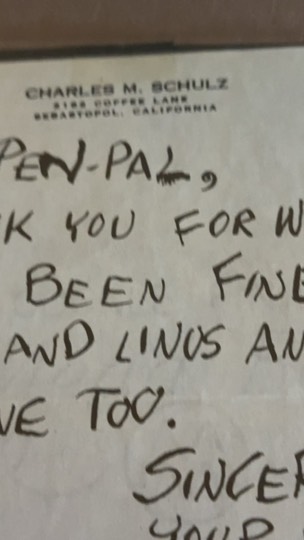 CHARLES M. SCHULZ
2162 COFFEE LANE
SEBASTOPOL, CALIFORNIA
PEN-PAL,
K YOU FOR W
BEEN FINE
AND LINUS AN
VE TOO.
SINCER
YOUR